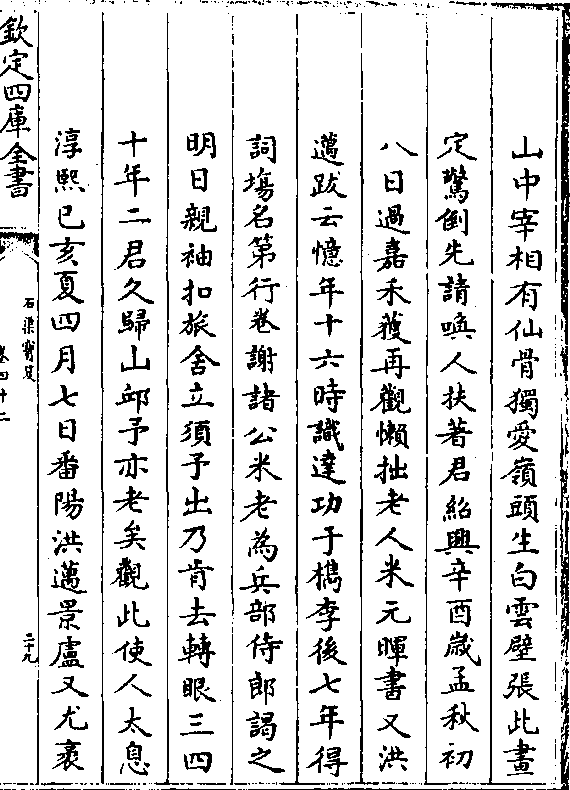 山中宰相有仙骨獨愛嶺頭生白雲壁張此畫
定驚倒先請喚人扶著君紹興辛酉歳孟秋初
八日過嘉禾獲再觀懶拙老人米元暉書又洪
邁跋云憶年十六時識達功于檇李後七年得
詞塲名第行卷謝諸公米老為兵部侍郎謁之
明日親袖扣旅舍立須予出乃肯去轉眼三四
十年二君久歸山邱予亦老矣觀此使人太息
淳熙己亥夏四月七日番陽洪邁景盧又尤袤
欽定四庫全書
石渠寳笈
卷四十二
二十九